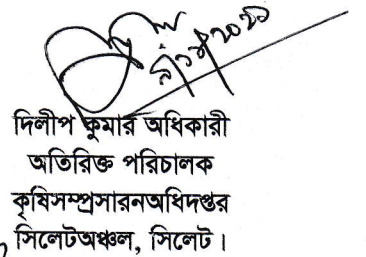 দিলীপ কুমার অধিকারী
অতিরিক্ত পরিচালক
কৃষিসম্প্রসারনঅধিদপ্তর
সিলেটঅঞ্চল, সিলেট।